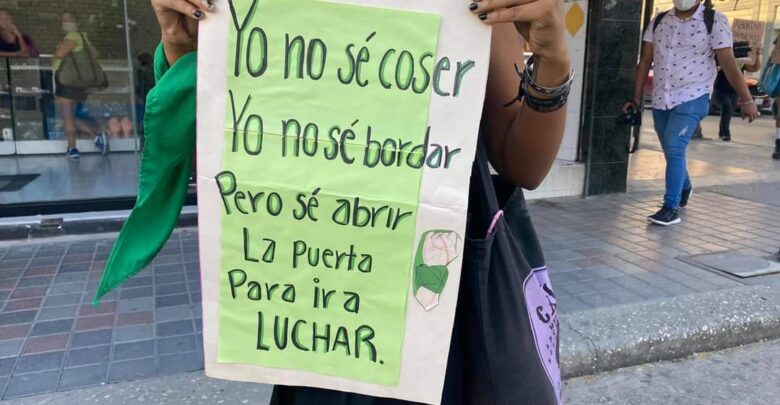 Yo no sé coser
Yo no sé bordar
Pero sé abrir
La puerta
Para ir a
LUCHAR.